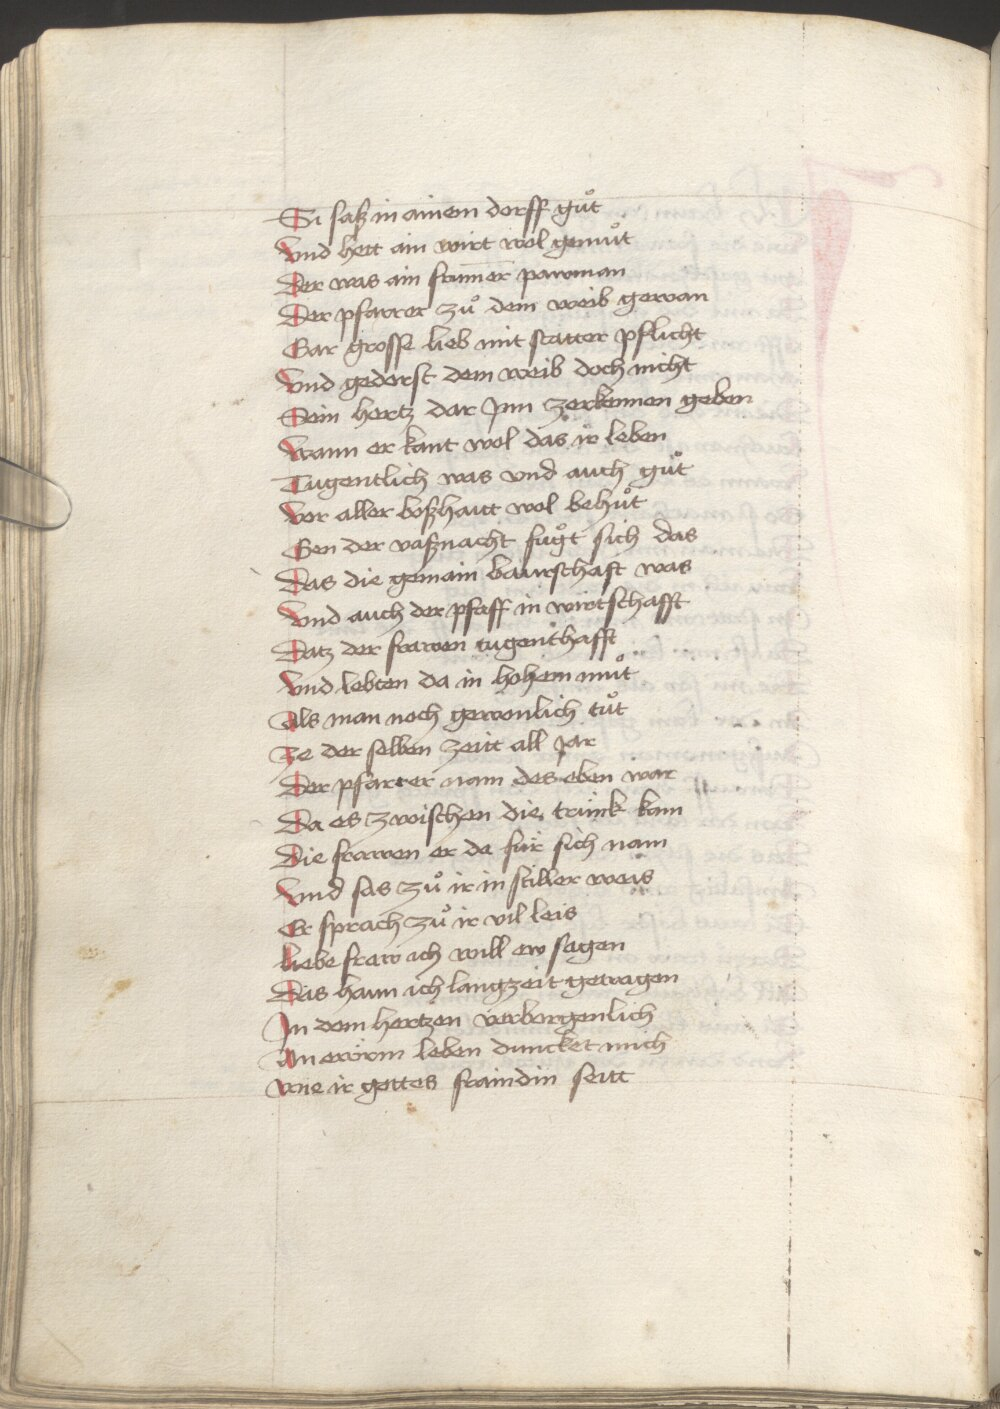 Si saß in ainem dorff gůt
Vnd hett ain wirt wol gemůt
Der was ain frumer pawman
Der pfarrer zů dem weib gewan
Gar grosse lieb mit statter pflicht
Vnd gedorst dem weib doch nicht
Sein hertz dar Jnn zerkennen geben
Wann er kant wol das ir leben
Tugentlich was vnd auch gůt
Vor aller boßhait wol behůt
Gen der vaßnacht fůgt sich das
Das die gemain baurschaft was
Vnd auch der pfaff in wirtschafft
Datz der frawen tugenthafft
Vnd lebten da in hohem můt
Als man noch gewonlich tůt
Ze der selben zeitt all Jar
Der pfarrer nam des eben war
Da es zwischen die trinck kam
Die frawen er da für sich nam
Vnd sas zů ir in stiller weis
Er sprach zů ir vil leis
Liebe fraw ich will ew sagen
Das hann ich langzeit getragen
Jn dem hertzen verborgenlich
An ewrm leben duncket mich
Wie ir gottes fraindin seitt